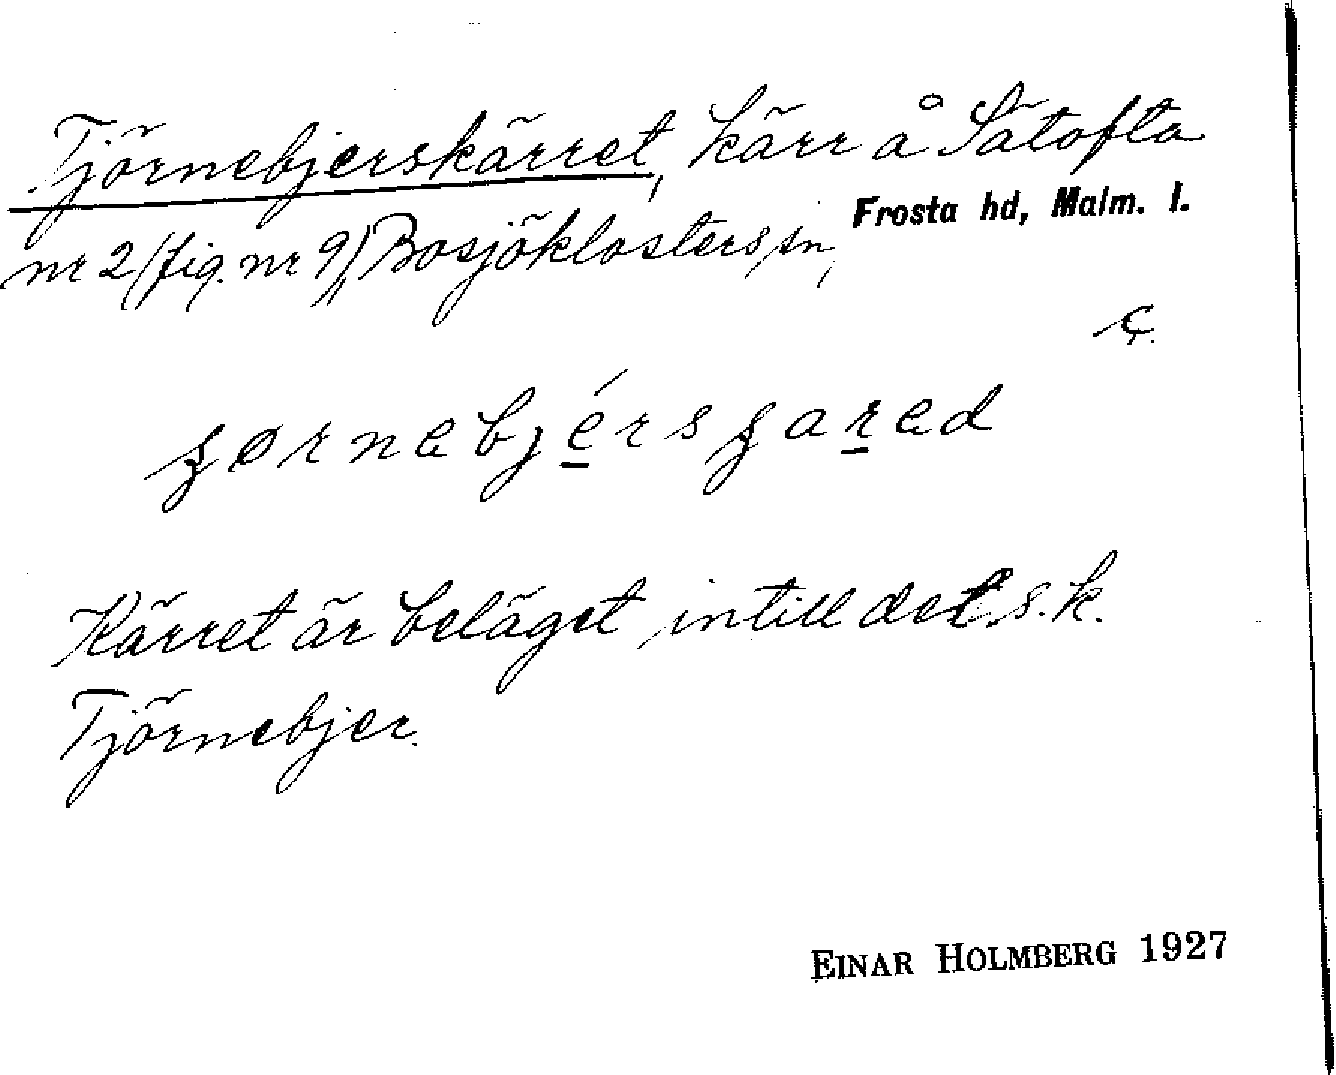 Tjörnebjerskärret, kärr å Sätofta
Frosta hd, Malm. l.
nr 2 (fig. nr 9), Bosjöklosters sn,
Kärret är beläget intill det s.k.
Tjörnebjer.
EINAR HOLMBERG 1927